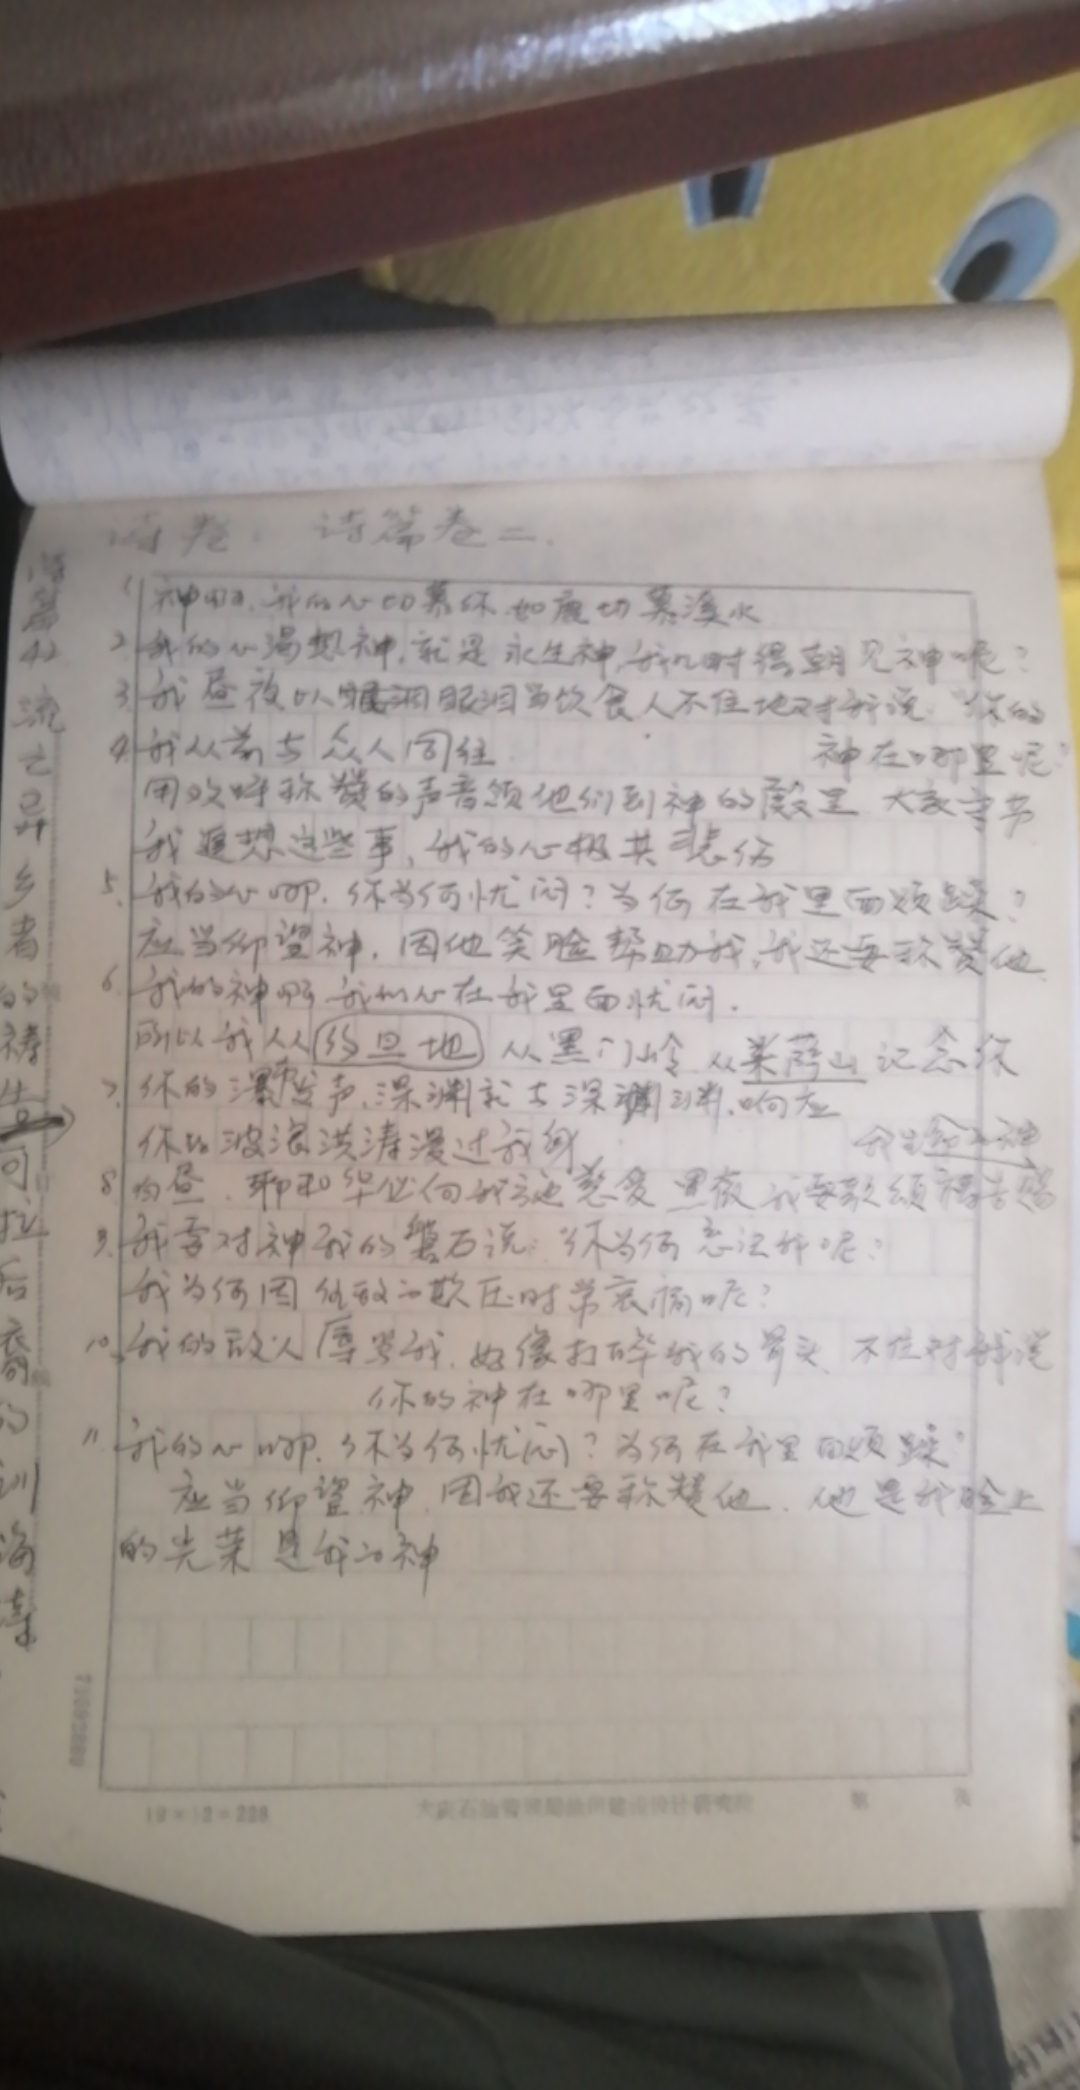 诗卷：诗篇卷二.
诗篇42 流亡异乡者的祷告 可拉后裔的训诲诗
1 神啊，我的心切慕你如鹿切慕溪水
2. 我的心渴想神，就是永生神，我几时得朝见神呢？
3. 我昼夜以眼泪当饮食人不住地对我说“你的
神在哪里呢？
4. 我从前与众人同往
用欢呼称赞的声音领他们到神的殿里 大家守节
我追想这些事，我的心极其悲伤
5. 我的心哪．你为何忧闷？为何在我里面烦躁？
应当仰望神，因他笑脸帮助我，我还要称赞他
6. 我的神啊 我的心在我里面忧闷．
所以我从约旦地 从黑门岭 从米萨山记念你
7. 你的瀑布发声，深渊就与深渊响应
你的波浪洪涛漫过我身
8 白昼，耶和华必向我施慈爱 黑夜 我要歌颂祷告赐
我生命的神
9. 我要对神我的磐石说：“你为何忘记我呢？
我为何因仇敌的欺压时常哀痛呢？
10. 我的敌人辱骂我，好像打碎我的骨头 不住对我说
你的神在哪里呢？
11. 我的心哪．你为何忧闷？为何在我里面烦躁？
应当仰望神．因我还要称赞他．他是我脸上
的光荣 是我的神
19×12=228
大庆石油管理局油田建设设计研究院
第 页